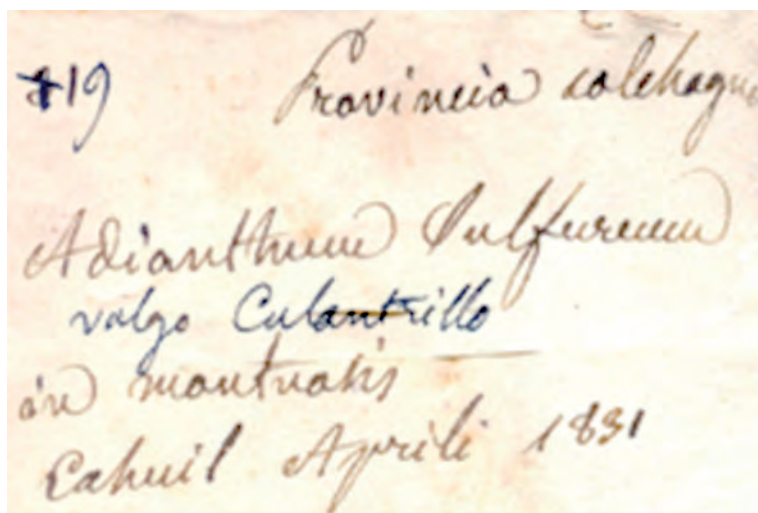 819 Provincia colchagua
Adianthum Sulfureum
vulgo Culantrillo
in
Cahuil Aprili 1831